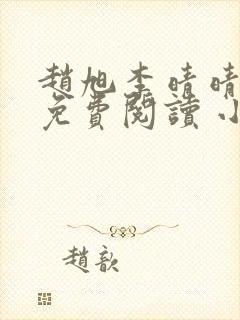 趙旭李晴晴
免費閱讀小
趙歆